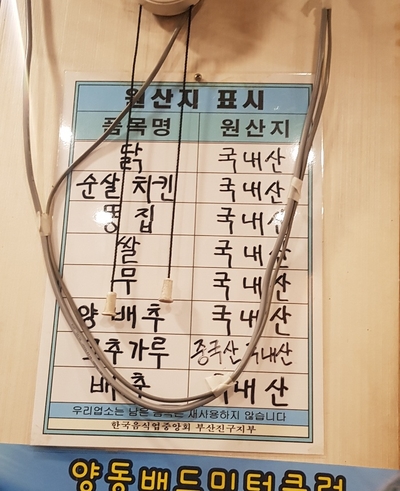 원산지 표시
품목명 원산지
닭 국내산
순살 치킨 국내산
똥 집 국내산
쌀 국내산
무 국내산
양 배추 국내산
고추가루 중국산 국내산
배추 국내산
우리업소는 남은 음식은 재사용하지 않습니다
한국음식업중앙회 부산진구지부
양동배드민턴클럽